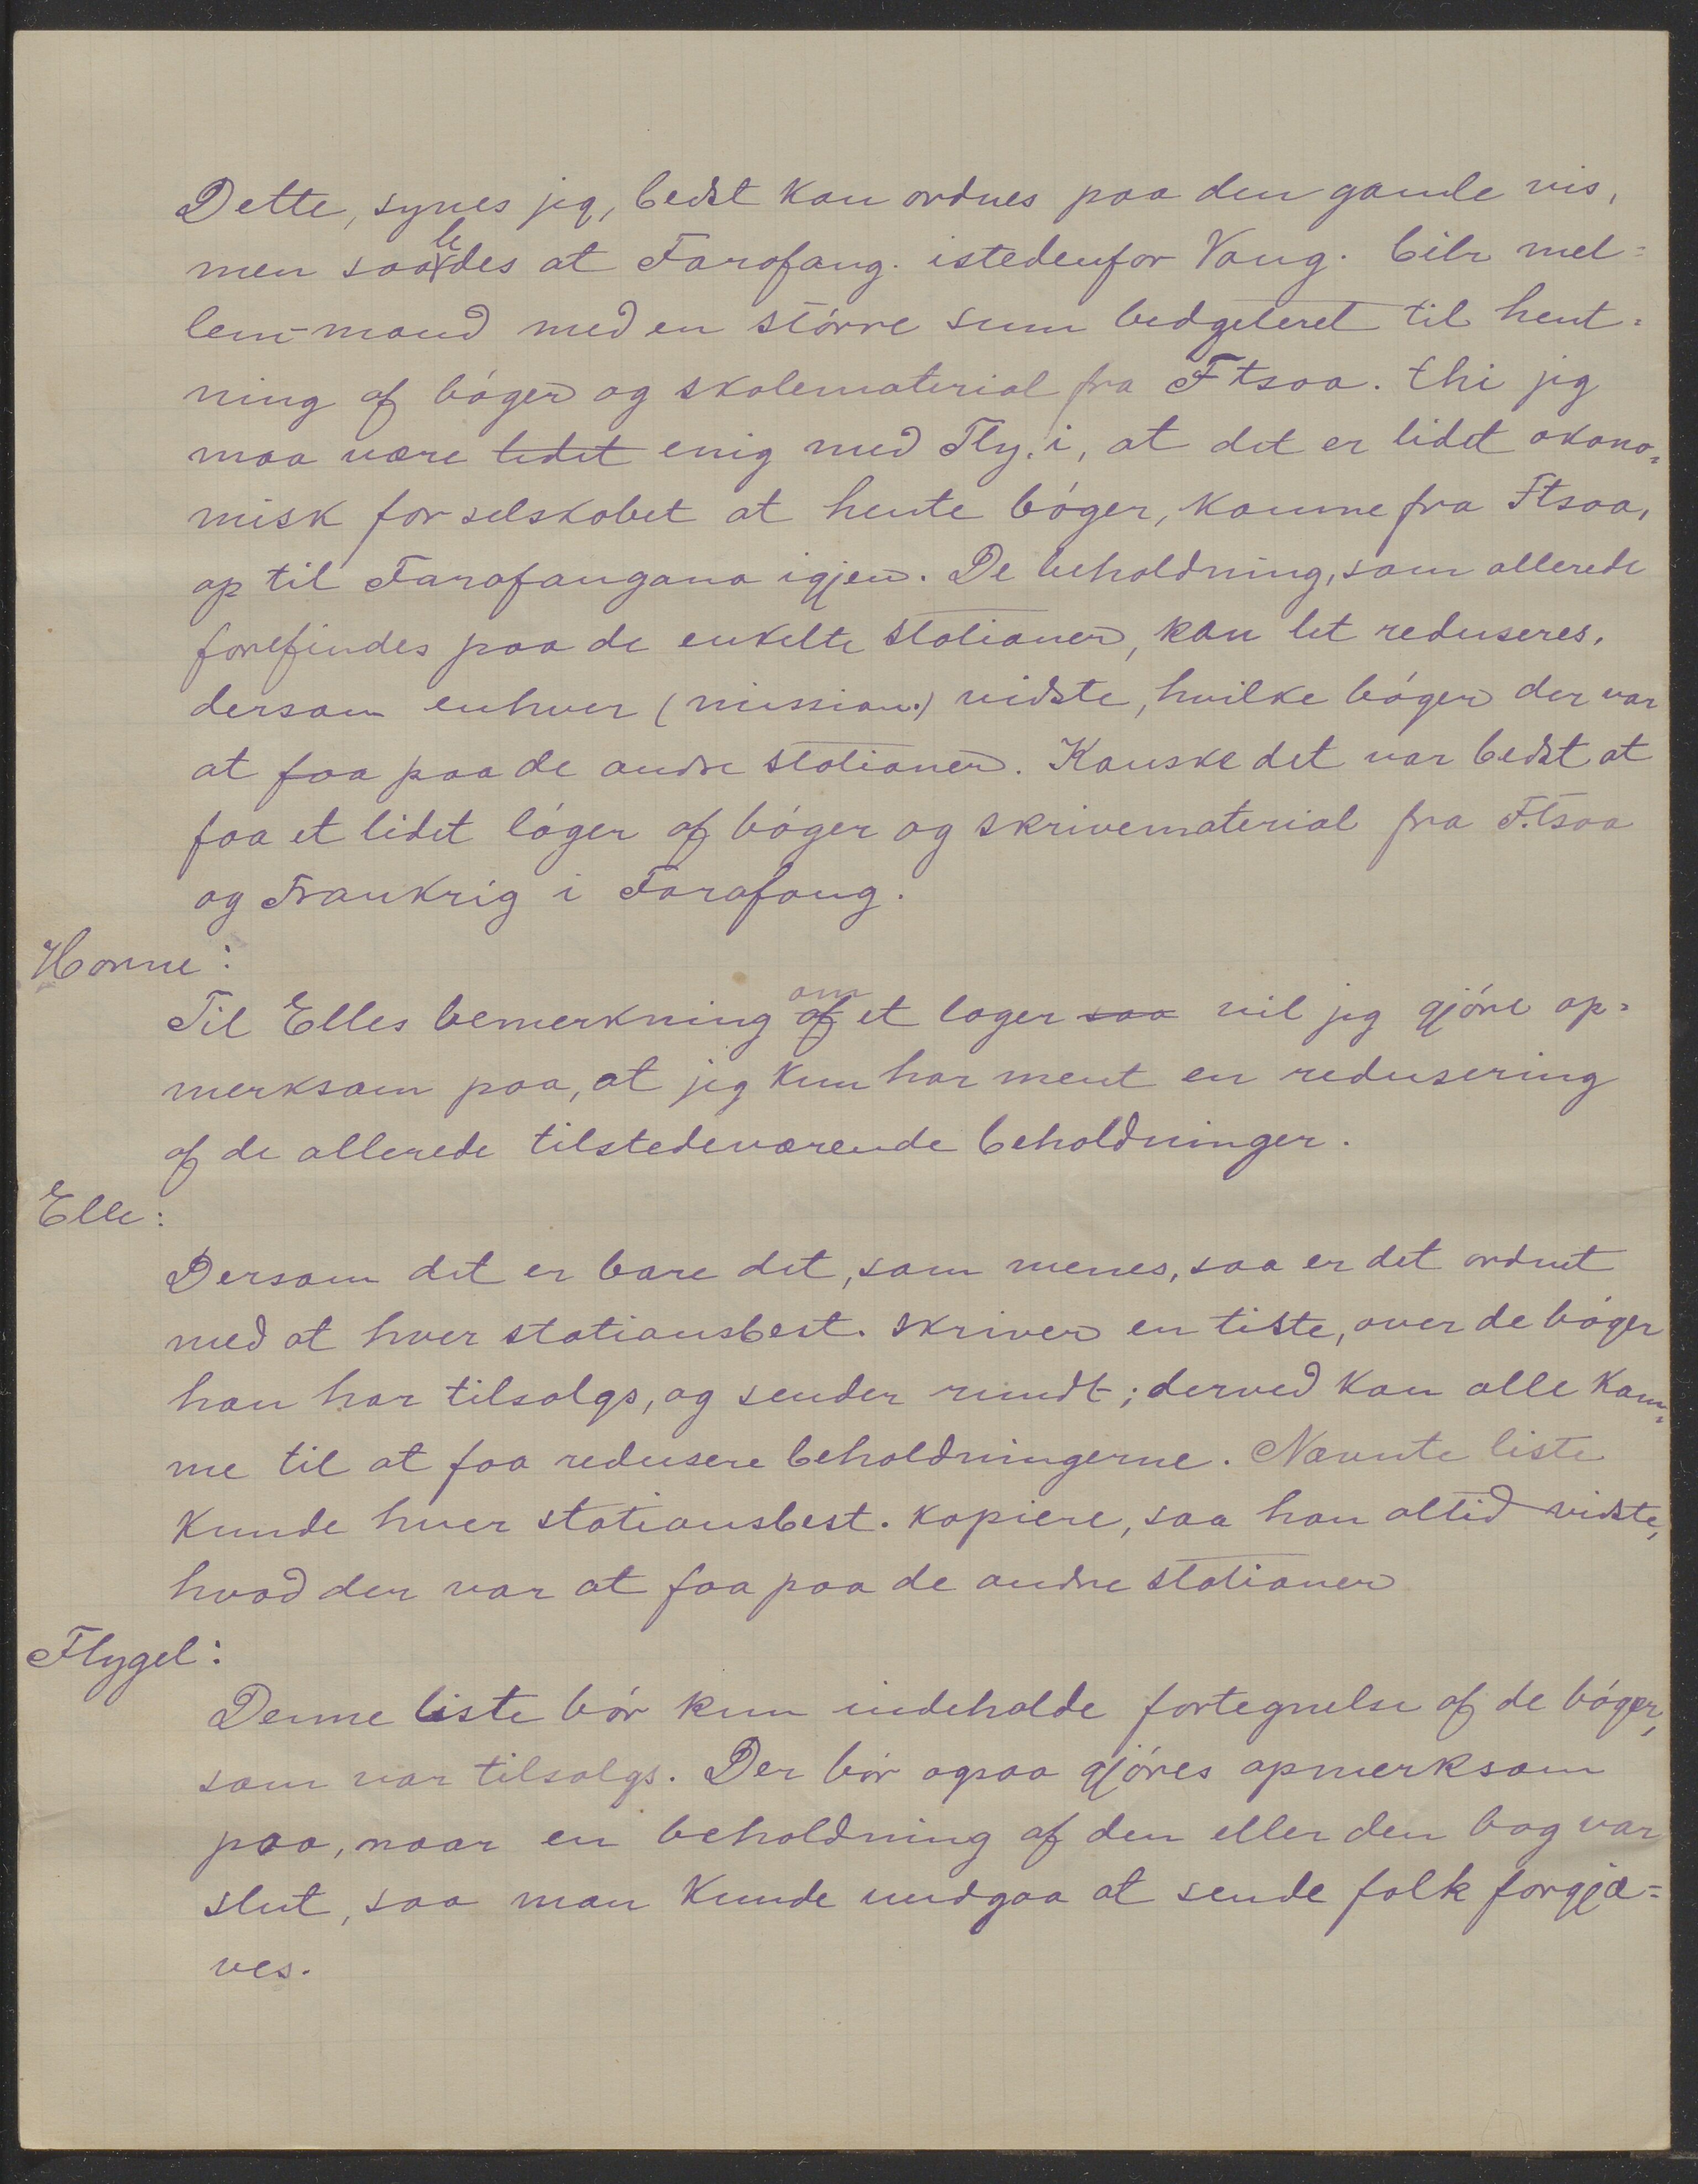 Dette, synes jeg, bedst kan ordnes paa den gamle vis,
men saaledes at Farafang. istedenfor Vang. bilr mel=
lem-mand med en större sum bedgeteret til hent=
ning af böger og skolematerial fra Ftsoa. thi jeg
maa være lidet enig med Fly. i, at det er lidet økono=
misk for selskabet at hente böger, komne fra Ftsoa,
op til Farafangana igjen. De beholdning, som allerede
forefindes paa de enkelte stationer, kan let reduseres,
dersom enhver (mission.) vidste, hvilke böger der var
at faa paa de andre stationer. Kanske det var bedst at
faa et lidet lager af böger og skrivematerial fra F.tsoa
og Frankrig i Farafang.
Honne:
Til Elles bemerkning af om et lager saa vil jeg gjöre op=
merksom paa, at jeg kun har ment en redusering
af de allerede tilstedeværende beholdninger.
Elle:
Dersom det er bare det, som menes, saa er det ordnet
med at hver stationsbest. skriver en liste, over de böger
han har tilsalgs, og sender rundt; derved kan alle kom=
me til at faa redusere beholdningerne. Nævnte liste
kunde hver stationsbest. kopiere, saa han altid vidste,
hvad der var at faa paa de andre stationer
Flygel:
Denne liste bör kun indeholde fortegnelse af de böger,
som var tilsalgs. Der bör ogsaa gjöres opmerksom
paa, naar en beholdning af den eller den bog var
slut, saa man kunde undgaa at sende folk forgjæ=
ves.